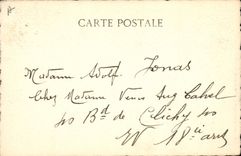 CARTE POSTALE
Madame Adolf. Jonas
Chez Madame Veuve Aug Cahel
40 Bd de Clichy 40
EV 18e arr